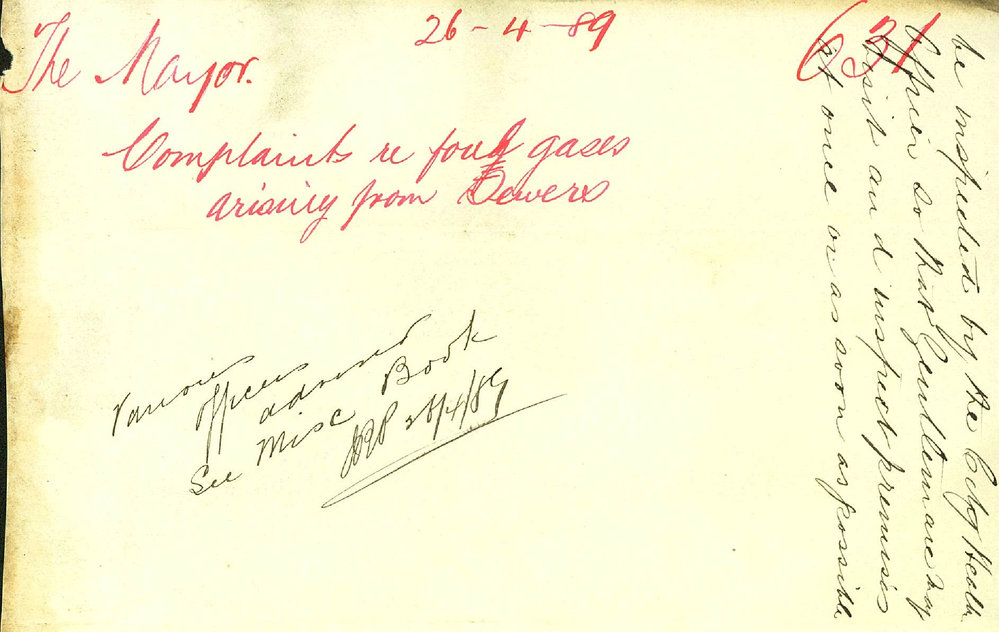 26-4-89
631
The Mayor.
Complaints re foul gases
arising from Sewers
Various
officers
advised
See Misc Book
26/4/89
be inspected by the City Health
Officer so that Gentleman may
visit and inspect premises
at once or as soon as possible